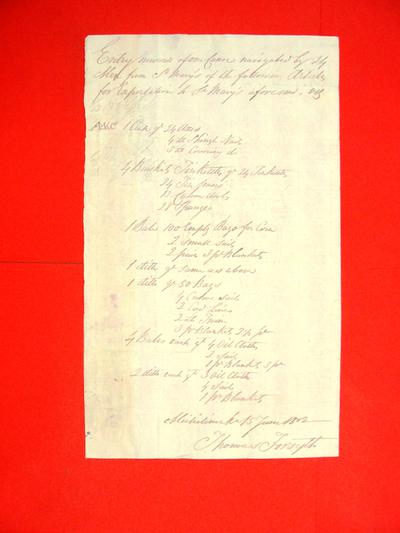 Entry inwards of one Canoe navigated by 24
Men from St Mary's of the following Articles
for Exportation to St Mary's aforesaid, viz
1 Cask qt 24 Axes
4 lb Shingle Nails
5 lb Covering do
4 Baskets Tin Kettles qt 24 Tin Kettles
24 Tin pans
28 Sponges
1 Bale 100 Empty Bags for Corn
2 small Sails
2 pair 3 pt Blankets
1 ditto qt same as above
1 ditto qt 50 Bags
4 Canoe Sails
2 Cod Lines
2 lb Twine
3 pr Blankets 2½ pt
4 Bales each qt 4 Oil Cloths
2 Sails
1 pr Blankets 3 pt
2 ditto each qt 3 Oil Cloths
4 Sails
1 pr Blankets
June
Thomas Forsyth